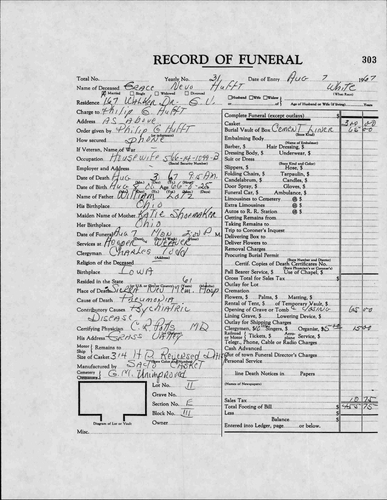 RECORD OF FUNERAL
303
Total No. Yearly No. 31 Date of Entry Aug 7 1967
Name of Deceased Grace Nevo Hufft White
Married Single Widowed Divorced Husband Wife Widow (What Race)
Residence 167 Walker Dr. G.V. or Age of Husband or Wife (if living) Years
Charge to Philip G Hufft
Address As Above
Order given by Philip G Hufft
How secured Phone
If Veteran, Name of War
Occupation Housewife
(Social Security Number)
Employer and Address
Date of Death Aug 3 67
Date of Birth Aug
Name of Father William
His Birthplace Ohio
Maiden Name of Mother Katie Shomaker
Her Birthplace Ohio
Date of Funeral Aug 7 Mon 2:00 P M.
Services at Hooper Weaver
Clergyman Charles Todd
Religion of the Deceased
Birthplace Iowa
Resided in the State 61
Place of Death Sierra Nev Mem. Hosp.
Cause of Death Pneumonia
Contributory Causes Psychiatric
Disease
Certifying Physician C R Potts MD
His Address Grass Valley
Motor Remains to
Ship
Size of
Manufactured by Sacto Casket
Cemetery
Crematory G.M. Unimproved
Lot No. II
Grave No.
Section No. E
Block No. III
Owner
Diagram of Lot or Vault
Misc.
Complete Funeral (except outlays) $
Casket 300 00
Burial Vault of Box Cement Liner 65 00
(State Kind)
Embalming Body
(Name of Embalmer)
Barber, $ Hair Dressing, $
Dressing Body, $ Underwear, $
Suit or Dress
(State Kind and Color)
Slippers, $ Hose, $
Folding Chairs, $ Tarpaulin, $
Candelabrum, $ Candles, $
Door Spray, $ Gloves, $
Funeral Car, $ Ambulance, $
Limousines to Cemetery @ $
Extra Limousines @ $
Autos to R. R. Station @ $
Getting Remains from
Taking Remains to
Trip to Coroner's Inquest
Delivering Box to
Deliver Flowers to
Removal Charges
Procuring Burial Permit
(State Number and District)
Certif. Copies of Death Certificate No.
(State Physician's or Coroner's)
Pall Bearer Service, $ Use of Chapel, $
Gross Total for Sales Tax $
Outlay for Lot
Cremation
Flowers, $ Palms, $ Manting, $
Rental of Tent, $ of Temporary Vault, $
Opening of Grave or Tomb Closing 65 00
Lining Grave, $ Lowering Device, $
Outlay for Shipping Charges
Clergyman, $ Singers, $ Organist, $ 15 00
Railroad or Motor Tickets, $ Aeroplane Service, $
Telegr., Phone, Cable or Radio Charges
Cash Advanced
Out of town Funeral Director's Charges
Personal Service
line Death Notices in Papers
(Names of Newspapers)
Sales Tax 10 75
Total Footing of Bill $
Less
Balance $
Entered into Ledger, page or below.